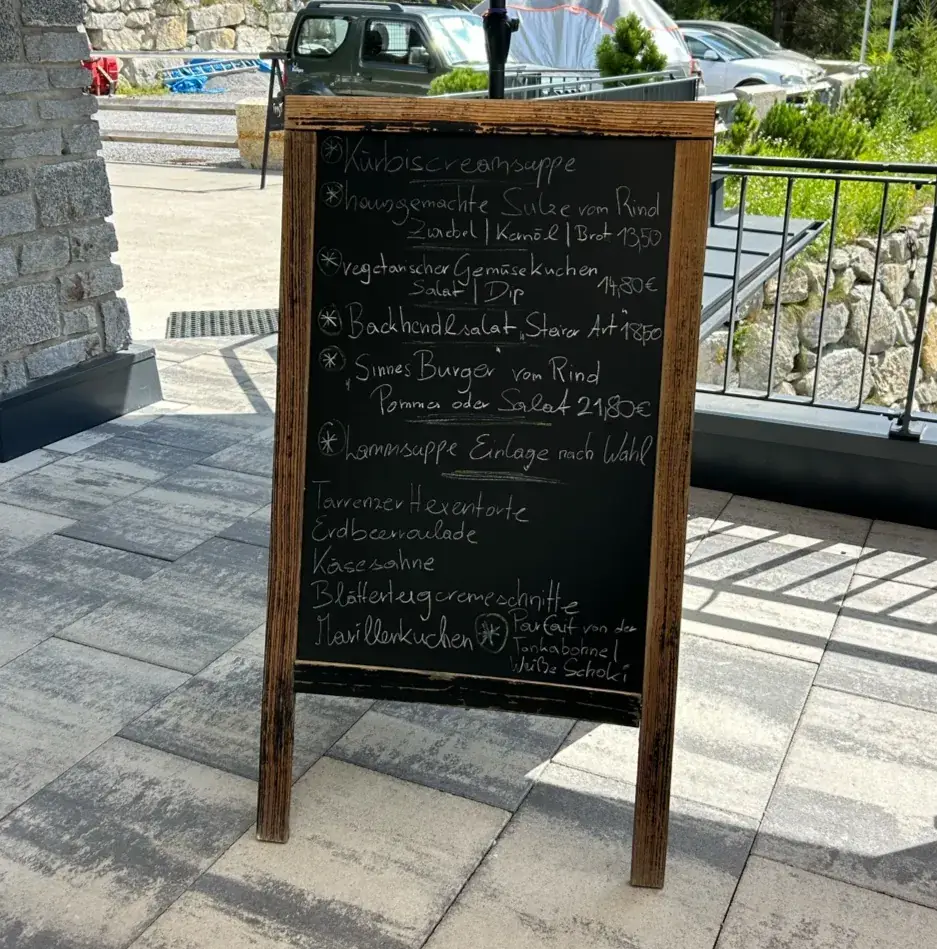 Kürbiscreamsuppe
hausgemachte Sulze vom Rind
Zwiebel | Kernöl | Brot 13,50
vegetarischer Gemüsekuchen
Salat | Dip 14,80€
Backhendlsalat „Steirer Art" 18,50
„Sinnes Burger" vom Rind
Pommes oder Salat 21,80€
Lammsuppe Einlage nach Wahl
Tarrenzer Hexentorte
Erdbeerroulade
Käsesahne
Blätterteigcremeschnitte
Marillenkuchen
Parfait von der
Tonkabohne |
Weiße Schoki